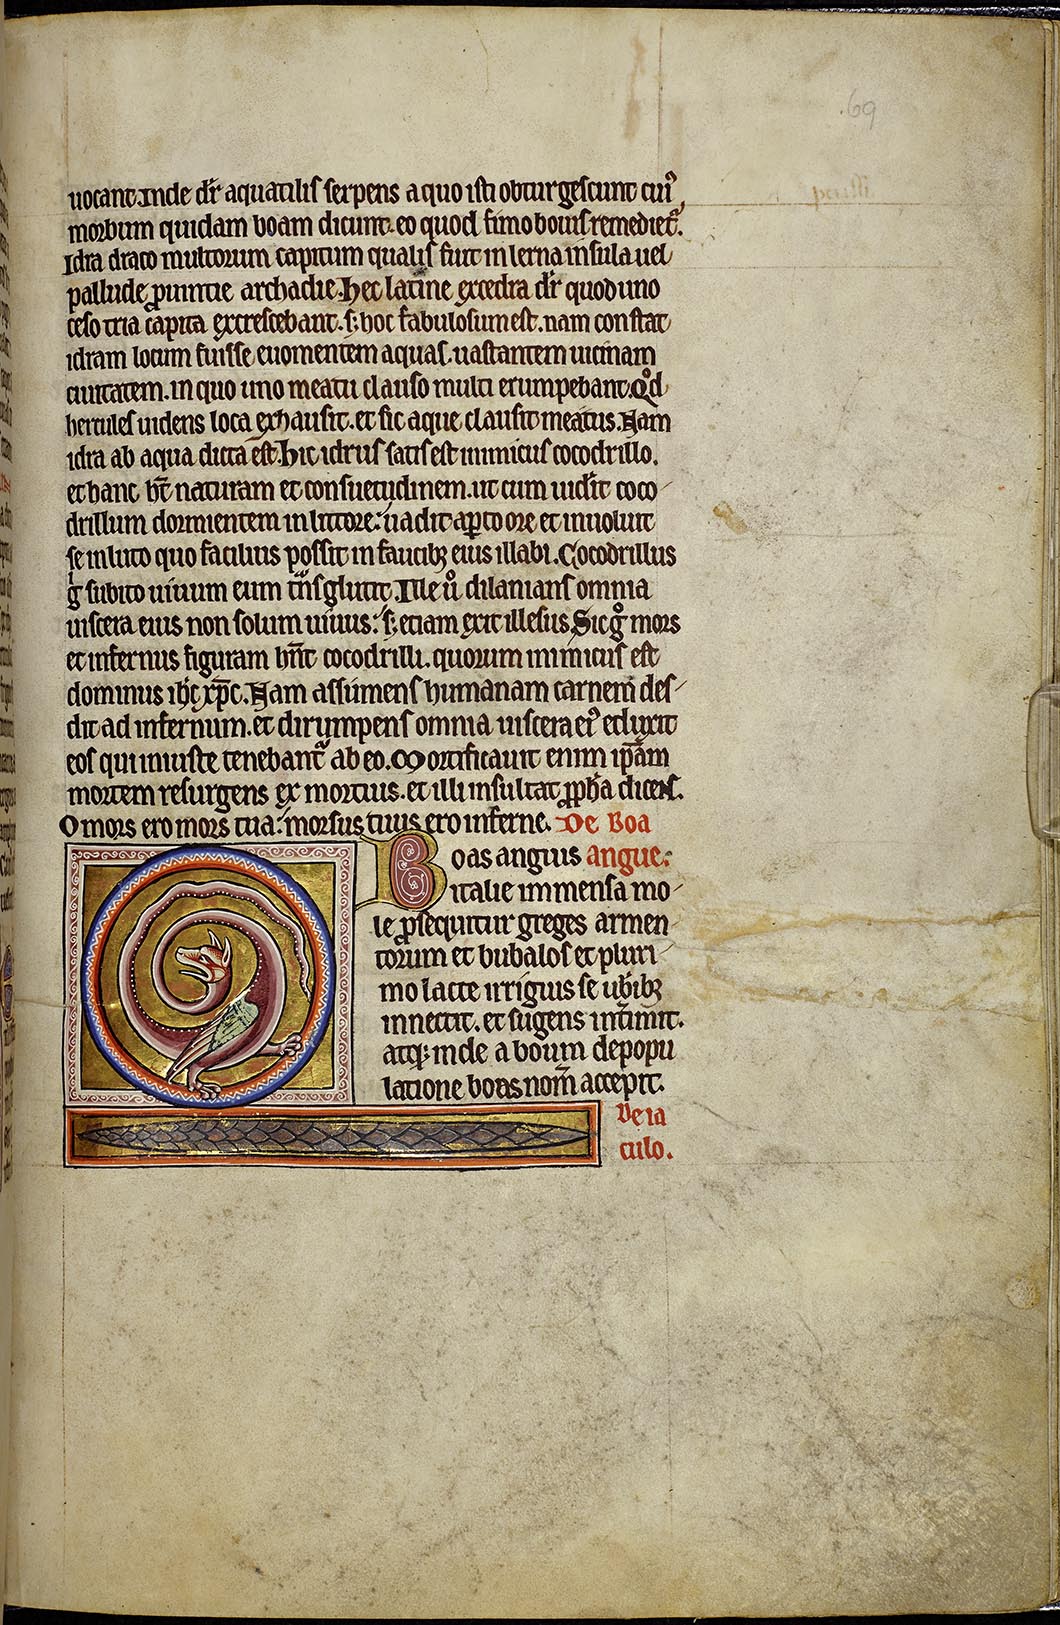 .69
uocant. Inde dr̄ aquatilis serpens a quo isti obturgescunt cui᷒
morbum quidam boam dicunt. eo quod fimo bouis remediet᷑.
Idra draco multorum capitum qualis fuit in lerna insula uel
pallude ꝓuintie archadie. Hec latine excedra dr̄ quod uno
ceso tria capita excrescebant. s; hoc fabulosum est. nam constat
idram locum fuisse euomentem aquas. uastantem uicinam
ciuitatem. in quo uno meatu clauso multi erumpebant. Qͦd
hercules uidens loca exhausit. et sic aque clausit meatus. Nam
idra ab aqua dicta est. Hic idrus satis est inimicus cocodrillo.
et hanc ht̄ naturam et consuetudinem. ut cum uid̕it coco
drillum dormientem in littore: uadit aꝑto ore et inuoluit
se in luto quo facilius possit in faucibꝫ eius illabi. Cocodrillus
gͥ subito uiuum eum tn̄sglutit. Ille uͦ dilanians omnia
uiscera eius non solum uiuus: s; etiam exit illesus. Sic gͦ mors
et infernus figuram hn̄t cocodrilli. quorum inimicus est
dominus ih̄c xp̄c. Nam assumens humanam carnem des-
dit ad infernum. et dirumpens omnia uiscera ei᷒ eduxit
eos qui iniuste tenebant᷑ ab eo. Mortificauit enim ip̄am
mortem resurgens ex mortuis. et illi insultat ꝓph̄a dicens.
O mors ero mors tua: morsus tuus ero inferne. De Boa
Boas anguis angue:
italie immensa mo-
le ꝓsequitur greges armen
torum et bubalos et pluri
mo lacte irriguis se ub̕ibꝫ
innectit. et sugens int̕imit.
atq; inde a boum depopu
latione boas nom̄ accepit.
De ia
culo.